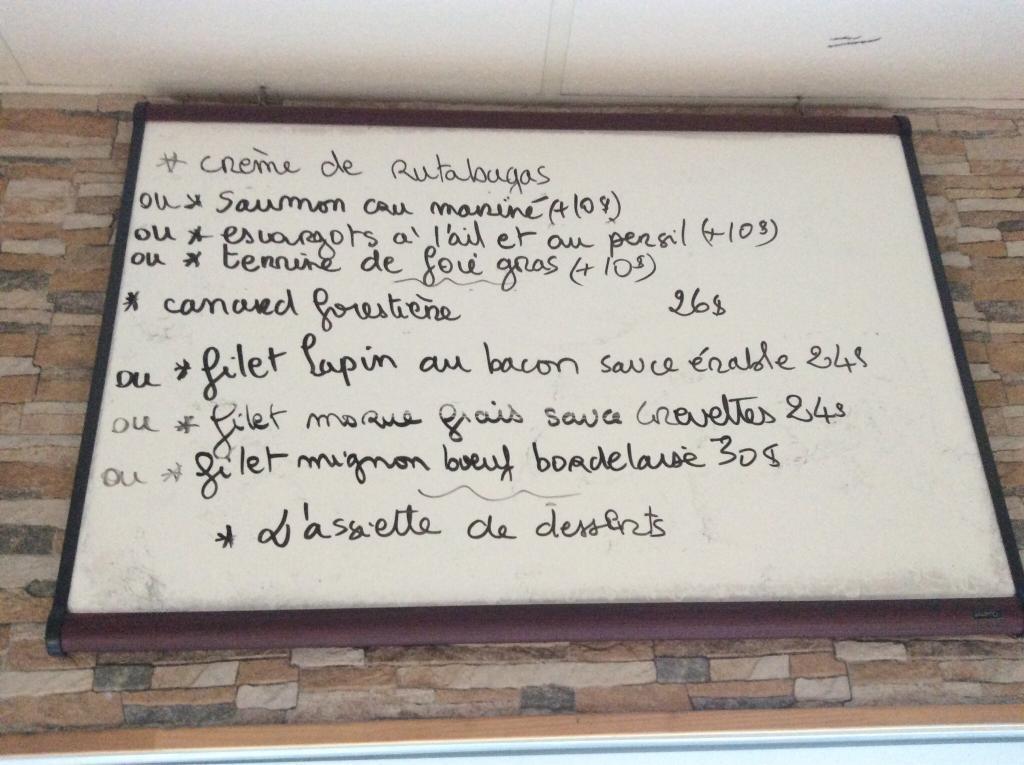 * crème de Rutabagas
ou * saumon cru mariné (+10$)
ou * escargots à l'ail et au persil (+10$)
ou * terrine de foie gras (+10$)
* canard forestière 26$
ou * filet lapin au bacon sauce érable 24$
ou * filet morue frais sauce crevettes 24$
ou * filet mignon boeuf bordelaise 30$
* L'assiette de desserts